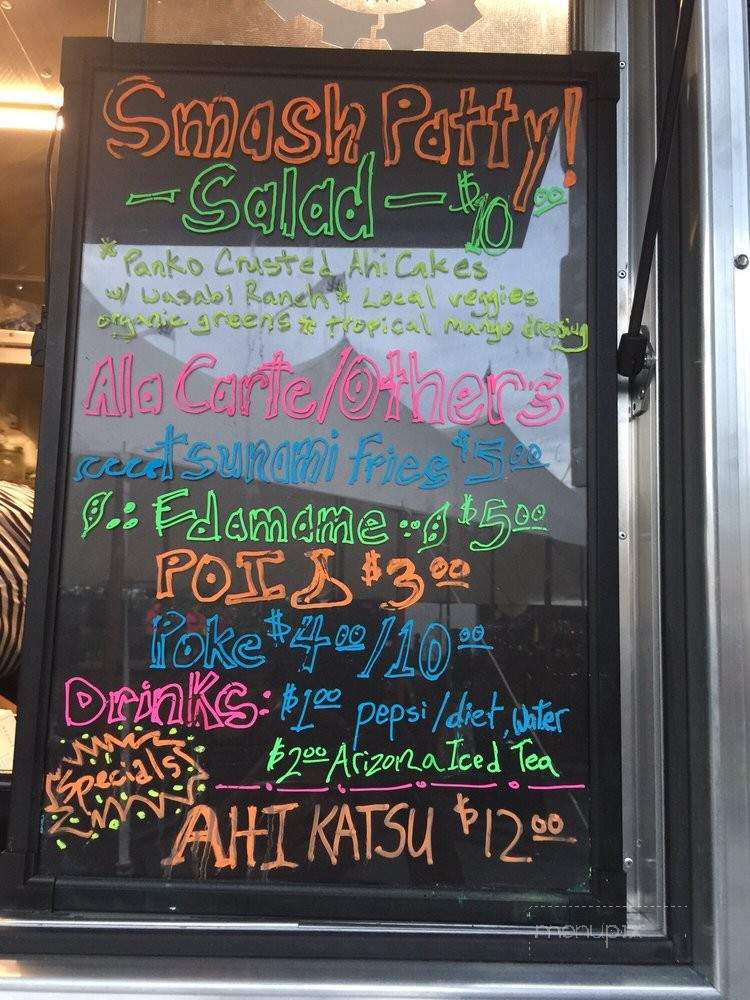 Smash Patty!
- Salad - $10.00
* Panko Crusted Ahi Cakes
w/ wasabi Ranch * Local veggies
organic greens * tropical mango dressing
Ala Carte/Others
tsunami fries $5.00
Edamame $5.00
POI $3.00
Poke $4.00/10.00
Drinks: $1.00 pepsi/diet, water
$2.00 Arizona Iced Tea
Specials
AHI KATSU $12.00
menupix